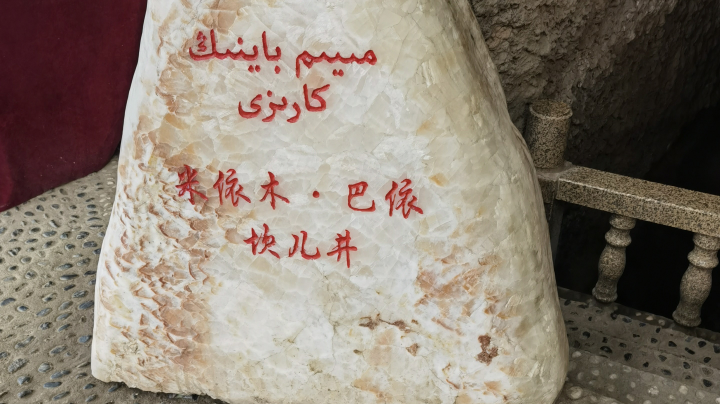 مىيىم باينىڭ
كارىزى
米依木·巴依
坎儿井